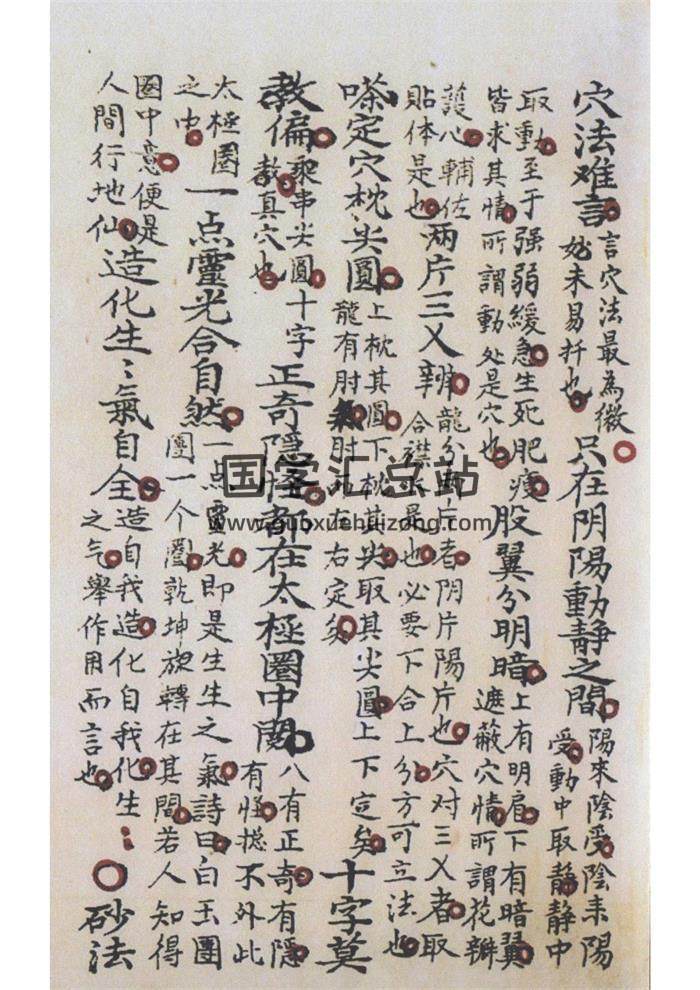 穴法难言
言穴法最為微
妙未易扦也
只在阴陽動靜之間
陽來陰受陰耒陽
受動中取静静中
取動至于强弱緩急生死肥瘦
皆求其情所謂動处是穴也
股翼分明暗
上有明肩下有暗翼
遮蔽穴情所謂花瓣
護心輔佐
貼体是也
两片三乂辨
龍分两片者阴片陽片也穴对三乂者取
合襟水是也必要下合上分方可立法也
嗏定穴枕尖圓
上枕其圓下枕其尖取其尖圓上下定矣
龍有肘氣肘在右定矣
十字莫
教偏
乘串尖圓十字
教真穴也
正奇隐怪都在太極圈中
八有正奇有隱
有怪揔不外此
太極圈
之中
一点靈光合自然
一点靈光即是生生之氣詩曰白玉團
團一个圈乾坤旋轉在其間若人知得
圈中意便是
人間行地仙
造化生〻氣自全
造自我造化自我化生〻
之气舉作用而言也
砂法
国学汇总站
www.guoxuehuizong.com